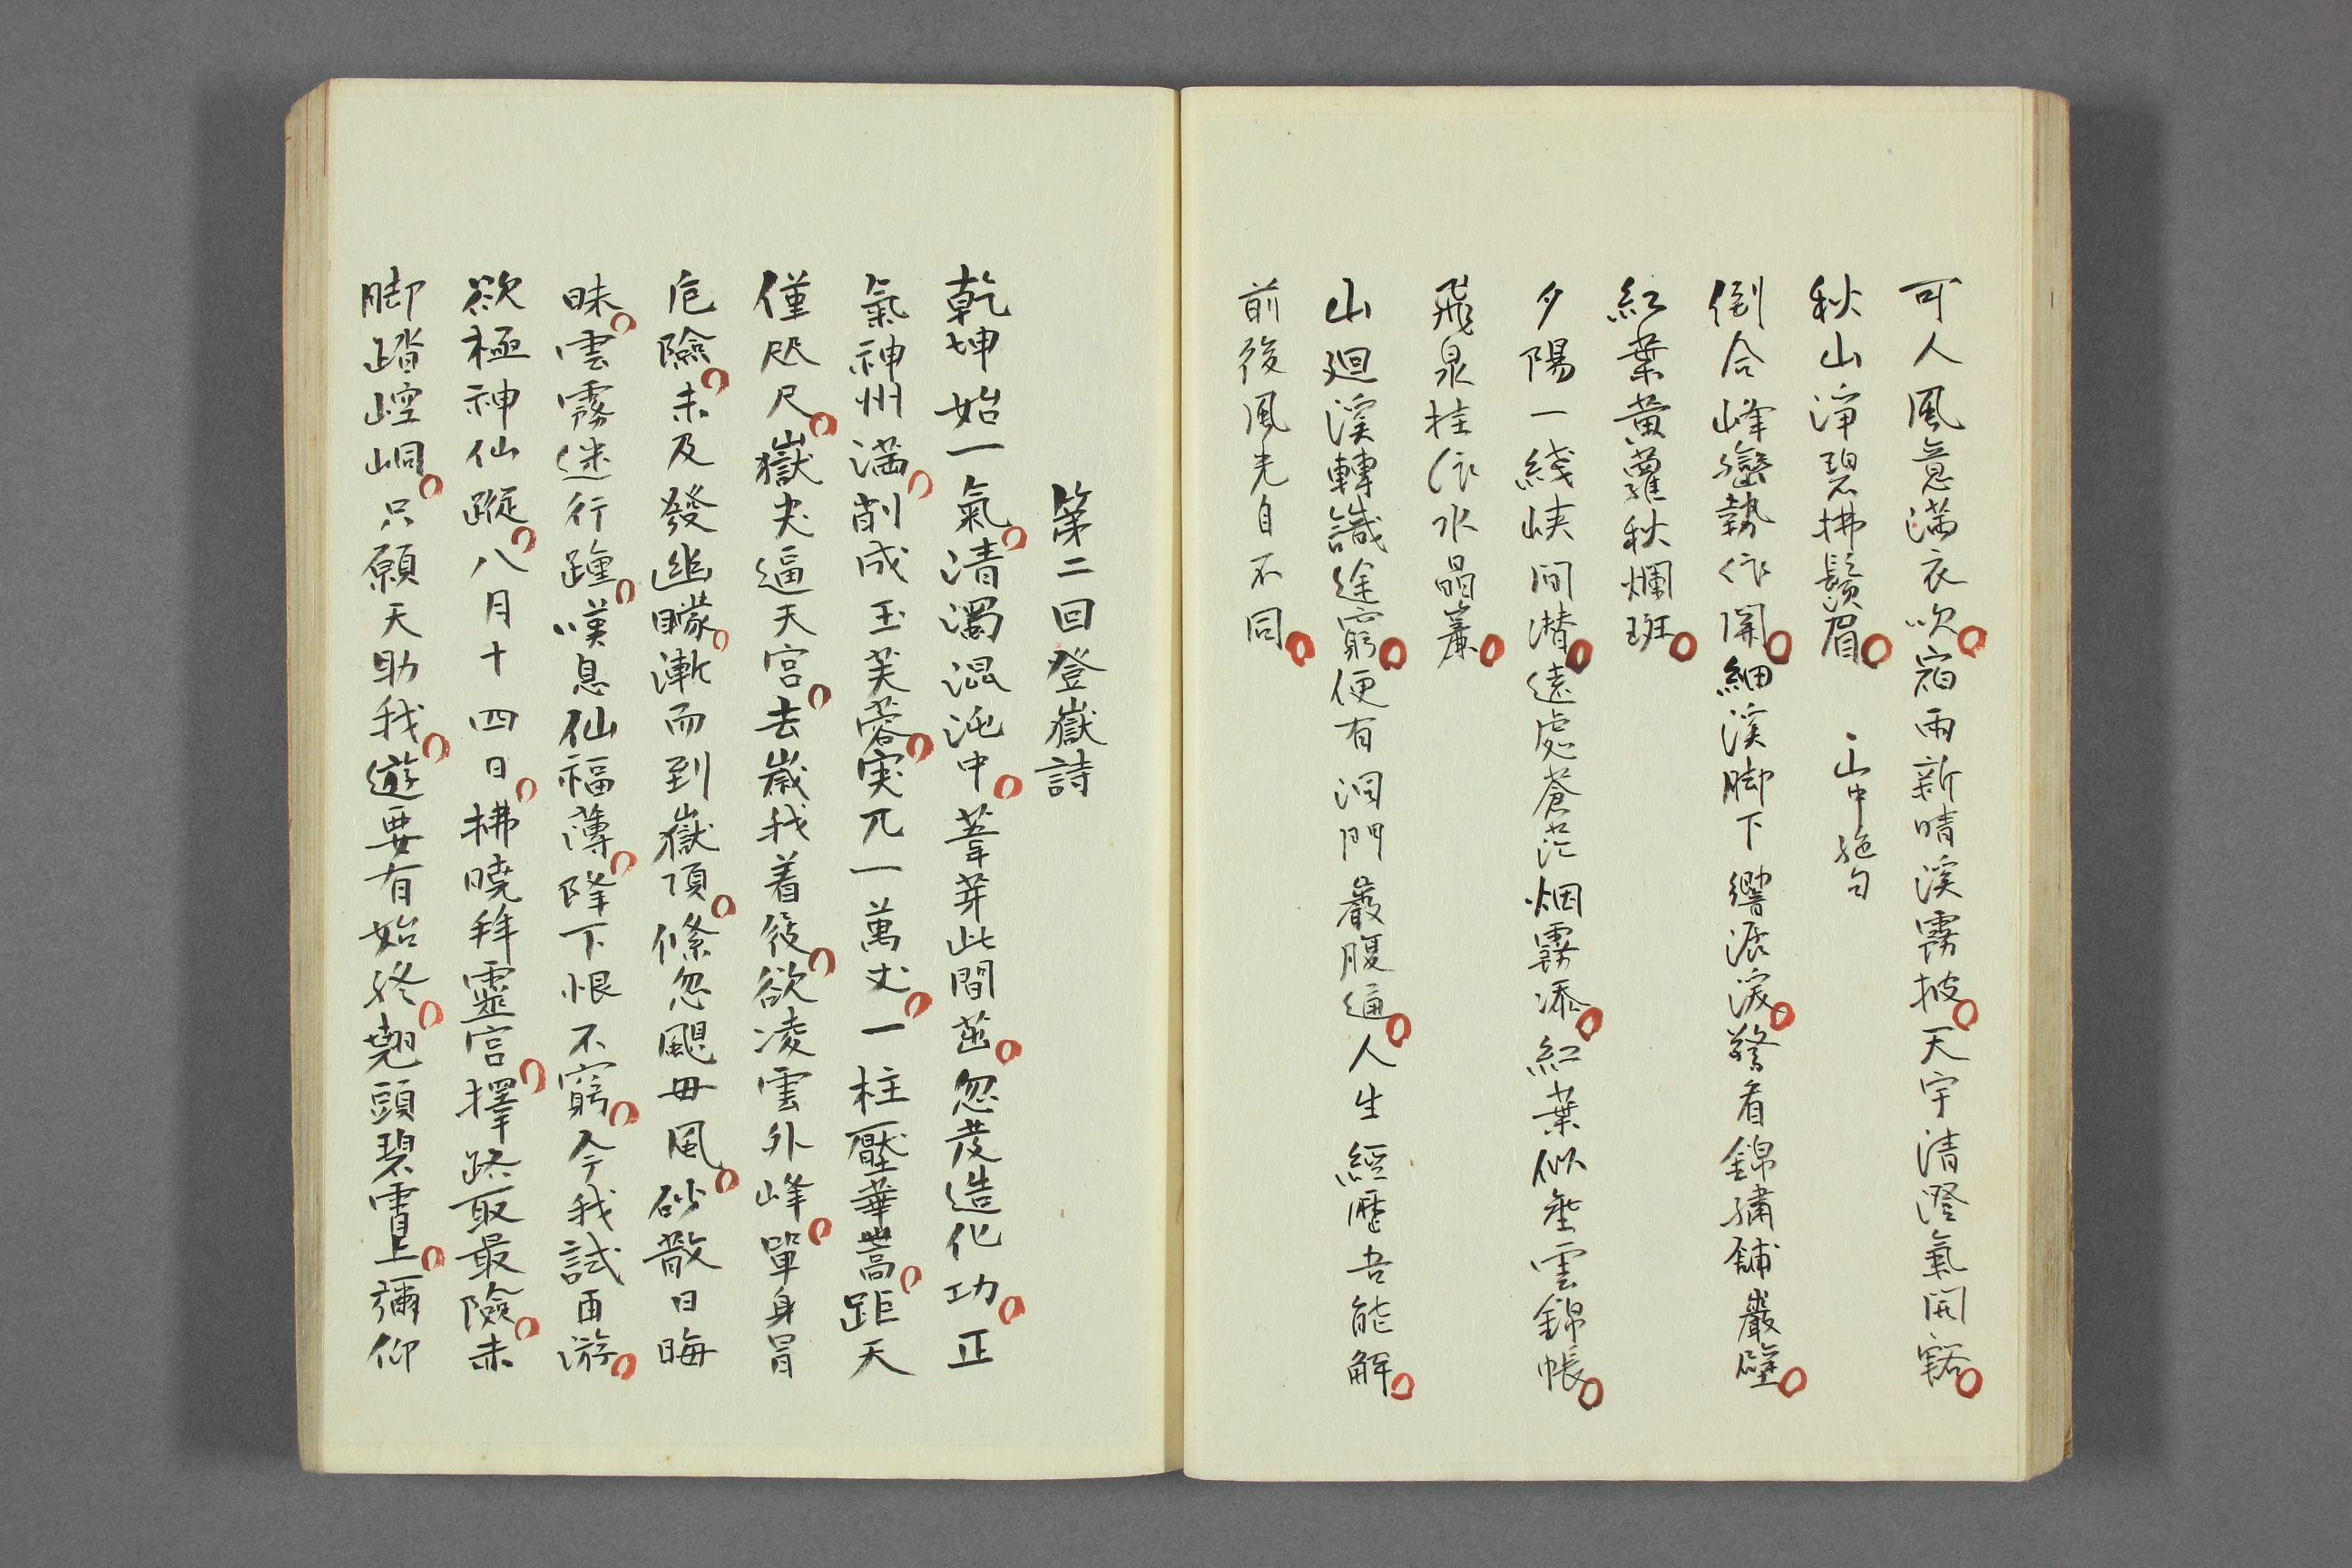 可人風意滿衣吹宿雨新晴溪霧披天宇清澄氣開豁
秋山淨碧拂鬚眉
山中絶句
倒合峰巒勢作開細溪脚下響潺湲驚看錦繡鋪巖壁
紅葉黃蘿秋爛斑
夕陽一綫峽間潜遠處蒼茫烟霧添紅葉似垂雲錦帳
飛泉挂作水晶簾
山廻溪轉識途窮便有洞門巖腹通人生經歷吾能解
前後風光自不同
第二回登嶽詩
乾坤始一氣清濁混沌中葦芽此間茁忽發造化功正
氣神州滿削成玉芙蓉実兀一萬丈一柱壓華嵩距天
僅咫尺嶽夫逼天宮去歲我着筱欲凌雲外峰單身冒
危險未及發幽矇漸而到嶽頂倏忽颶毋風砂散日晦
昧雲霧迷行踵嘆息仙福薄降下恨不窮今我試再游
欲極神仙蹤八月十四日拂曉拜靈宮擇路取最險赤
脚踏崆峒只願天助我遊要有始終翹頭碧霄上彌仰